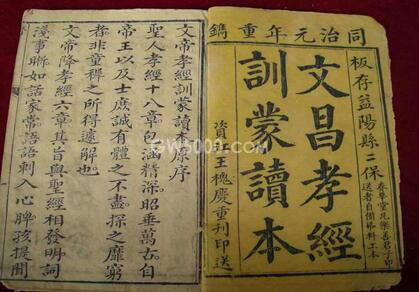 同治元年重鐫
板存益陽縣二保
文昌孝經
訓蒙讀本
資江王槐慶重刊印送
文帝孝經訓蒙讀本原序
聖人孝經十八章包涵精深昭垂萬古自
帝王以及士庶誠有體之不盡探之靡窮
者非童穉之所得遽解也
文帝降孝經六章其旨與聖經相發明詞
淺事晰如話家常語語刺入心脾孩提聞
GW5003.COM